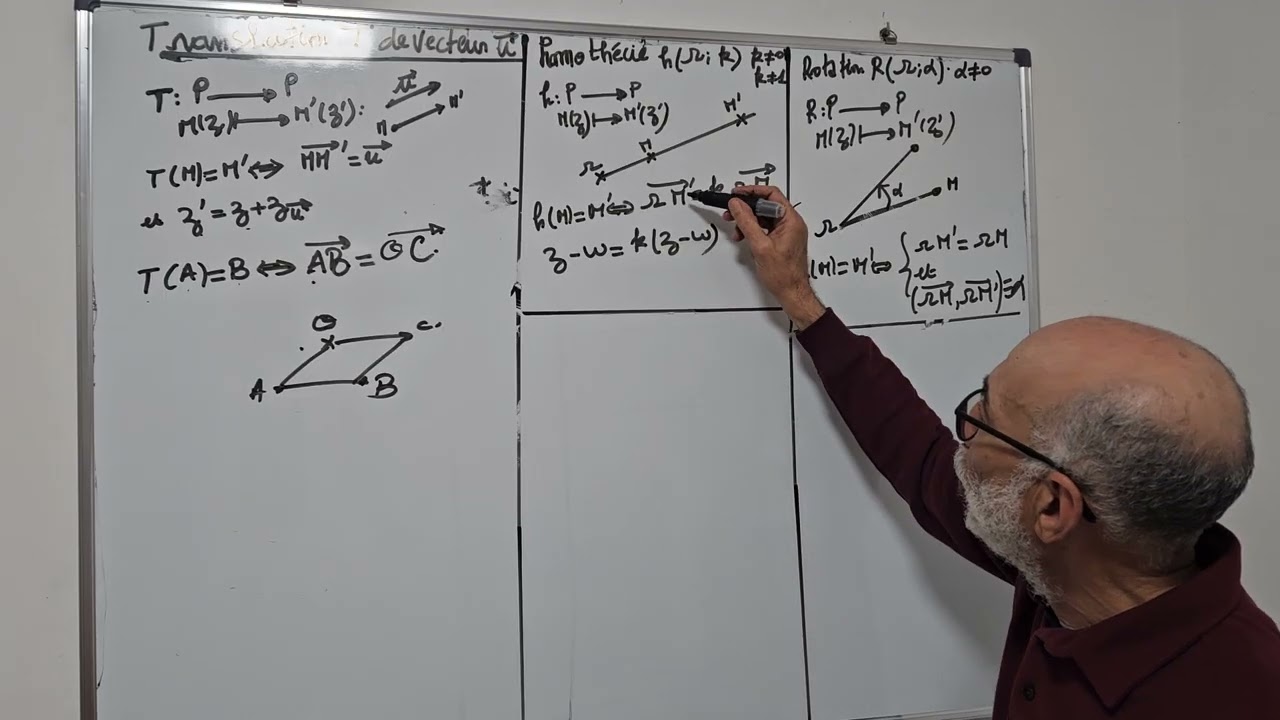 Translation T de vecteur u⃗
T: P ⟶ P
M(z) ⟼ M'(z'):
u⃗
M M'
T(M)=M' ⟺ MM'⃗ = u⃗
et z' = z + zu⃗
T(A)=B ⟺ AB⃗ = OC⃗.
O C.
A B
homothécié h(Ω; k) k≠0
k≠1
h: P ⟶ P
M(z) ⟼ M'(z')
Ω M M'
h(M)=M' ⟺ ΩM'⃗ k ΩM⃗
z-w = k(z-w)
Rotation R(Ω; α). α≠0
R: P ⟶ P
M(z) ⟼ M'(z')
Ω α M
(M)=M' ⟺ { ΩM' = ΩM
et
(ΩM⃗, ΩM'⃗) ≡ α